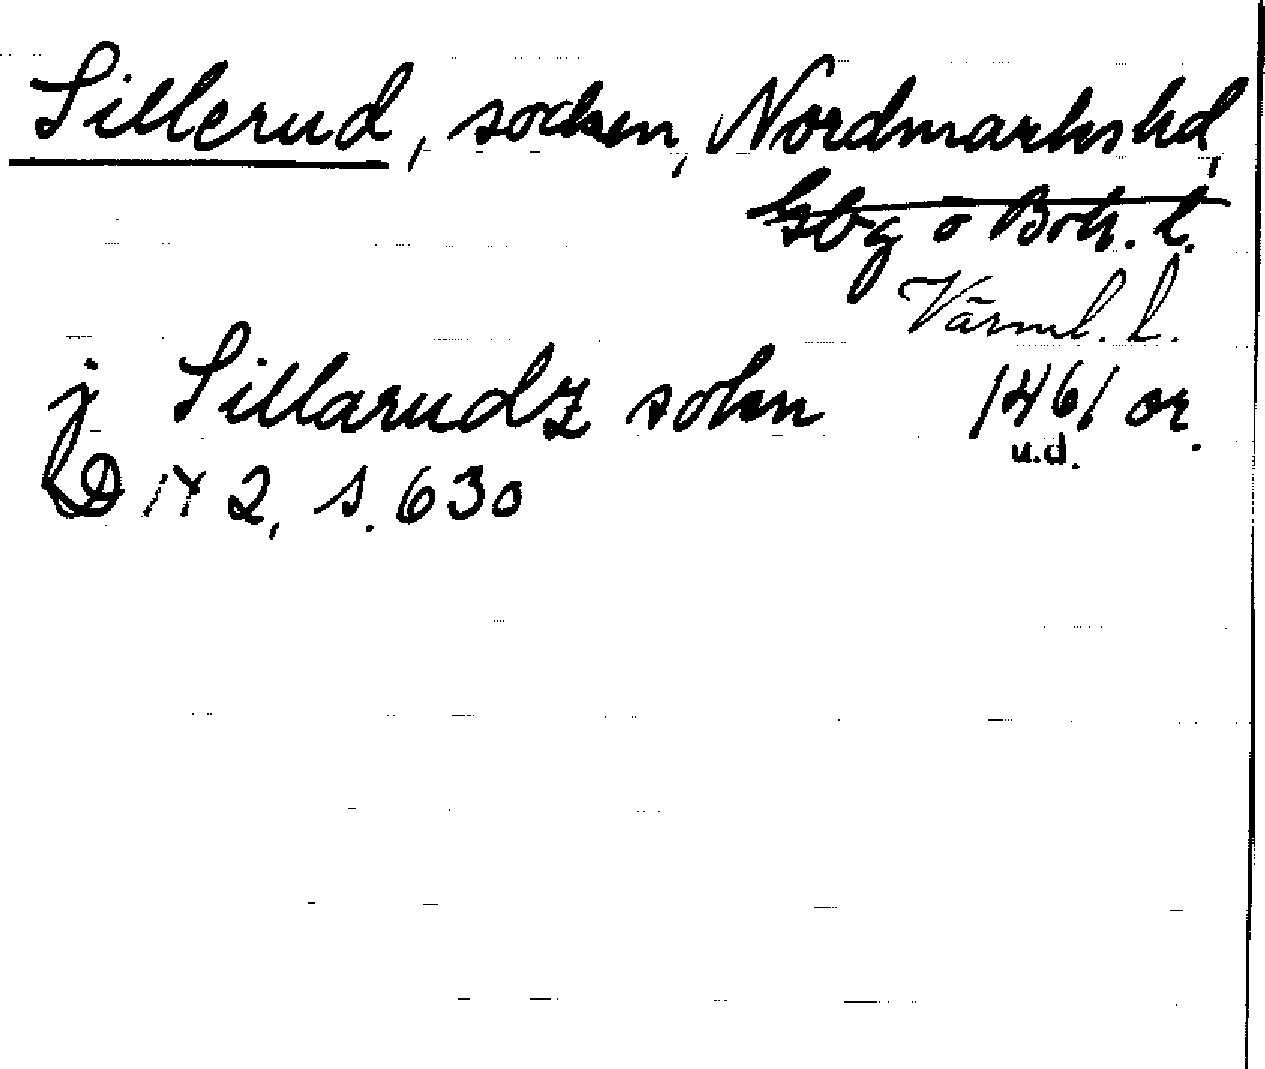 Sillerud, socken, Nordmarks hd,
Gbg o Boh. l.
Värml. l.
j Sillarudz sokn 1461 or.
u.d.
D IX 2, s. 630